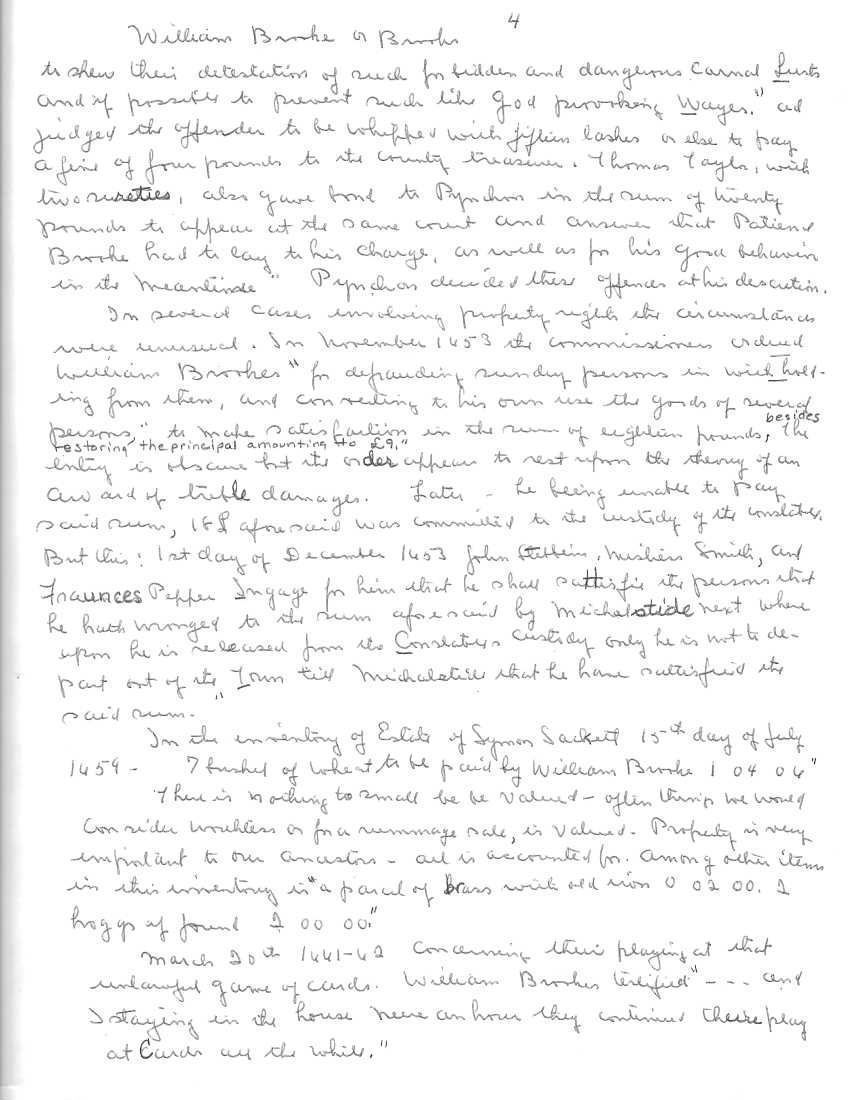 4
William Brooke or Brooks
to shew their detestation of such forbidden and dangerous Carnal Lusts
and if possible to prevent such like God provokeing Wayes." ad
judged the offender to be whipped with fifteen lashes or else to pay
a fine of four pounds to the county treasurer. Thomas Taylor, with
two sureties, also gave bond to Pynchon in the sum of twenty
pounds to appear at the same court and answer that Patience
Brooke had to lay to his charge, as well as for his good behavior
in the meantime" Pynchon decided these offences at his descretion.
In several cases involving property rights the circumstances
were unusual. In November 1653 the commissioners ordered
William Brookes "for defrauding sunday persons in with hold-
ing from them, and converting to his own use the goods of several
persons," to make satisfaction in the sum of eighteen pounds, besides
restoring the principal amounting to £9." The
entry is obscure but the order appears to rest upon the theory of an
award of treble damages. Later - he being unable to pay
said sum, 18£ aforesaid was committed to the custody of the constables.
But this: 1st day of December 1653 John Stebbins, Mishiers Smith, and
Fraunces Pepper Ingage for him that he shall sattisfie the persons that
he hath wronged to the sum aforesaid by Michalstide next where
upon he is released from the Constables Custody only he is not to de-
part out of the Town till Michalstide that he have sattisfied the
said sum."
In the inventory of Estate of Symon Sackett 15th day of July
1659 - 7 bushel of wheat to be paid by William Brooke 1 04 06"
There is nothing to small be be valued - often things we would
Consider worthless or for a rummage sale, is valued. Property is very
important to our ancestors - all is accounted for. Among other items
in this inventory is "a parcel of brass with old iron 0 02 00. 2
hoggs if found 2 00 00."
March 20th 1661-62 Concerning their playing at that
unlawful game of cards. William Brookes testified "- - - and
I staying in the house neere an hour they continued theire play
at Cards all the while."